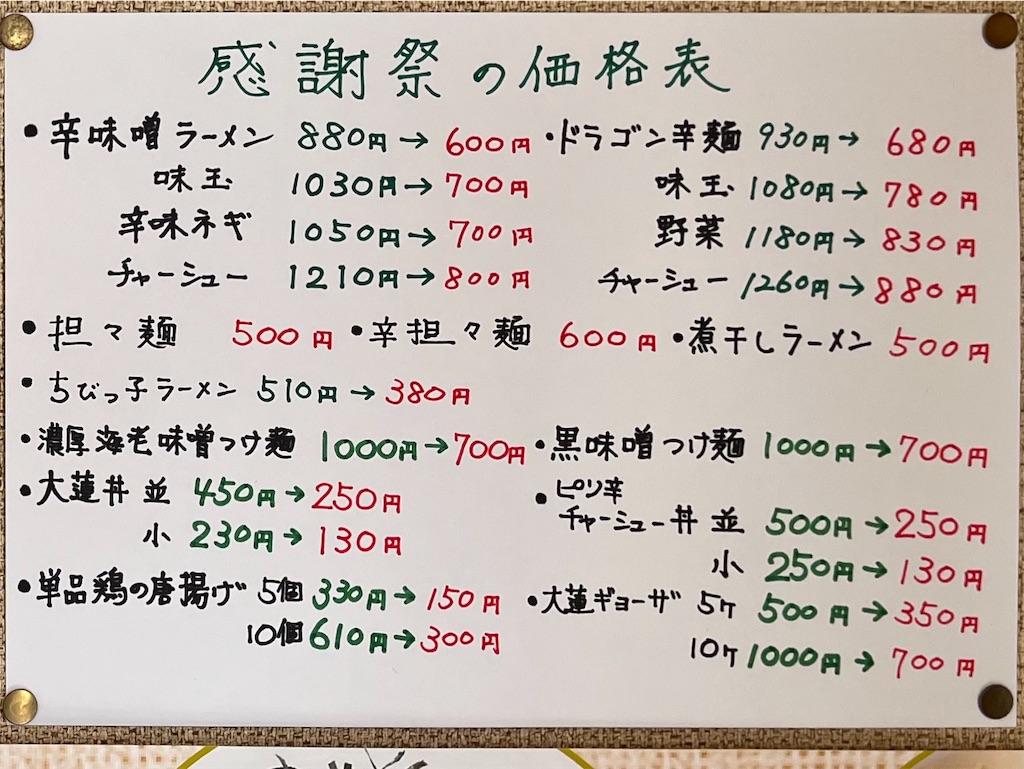 感謝祭の価格表
・辛味噌ラーメン 880円→600円
味玉 1030円→700円
辛味ネギ 1050円→700円
チャーシュー 1210円→800円
・ドラゴン辛麺 930円→680円
味玉 1080円→780円
野菜 1180円→830円
チャーシュー 1260円→880円
・担々麺 500円 ・辛担々麺 600円 ・煮干しラーメン 500円
・ちびっ子ラーメン 510円→380円
・濃厚海老味噌つけ麺 1000円→700円 ・黒味噌つけ麺 1000円→700円
・大蓮丼 並 450円→250円
小 230円→130円
・ピリ辛
チャーシュー丼 並 500円→250円
小 250円→130円
・単品鶏の唐揚げ 5個 330円→150円
10個 610円→300円
・大蓮ギョーザ 5ヶ 500円→350円
10ヶ 1000円→700円